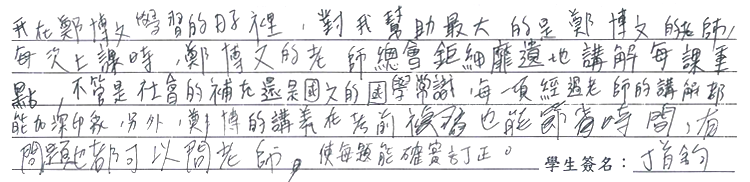 我在鄭博文學習的日子裡，對我幫助最大的是鄭博文的老師，
每次上課時，鄭博文的老師總會鉅細靡遺地講解每課重
點，不管是社會的補充還是國文的國學常識，每一項經過老師的講解都
能加深印象，另外，鄭博的講義在段前複習也能節省時間，有
問題也都可以問老師，使每題能確實訂正。 學生簽名：